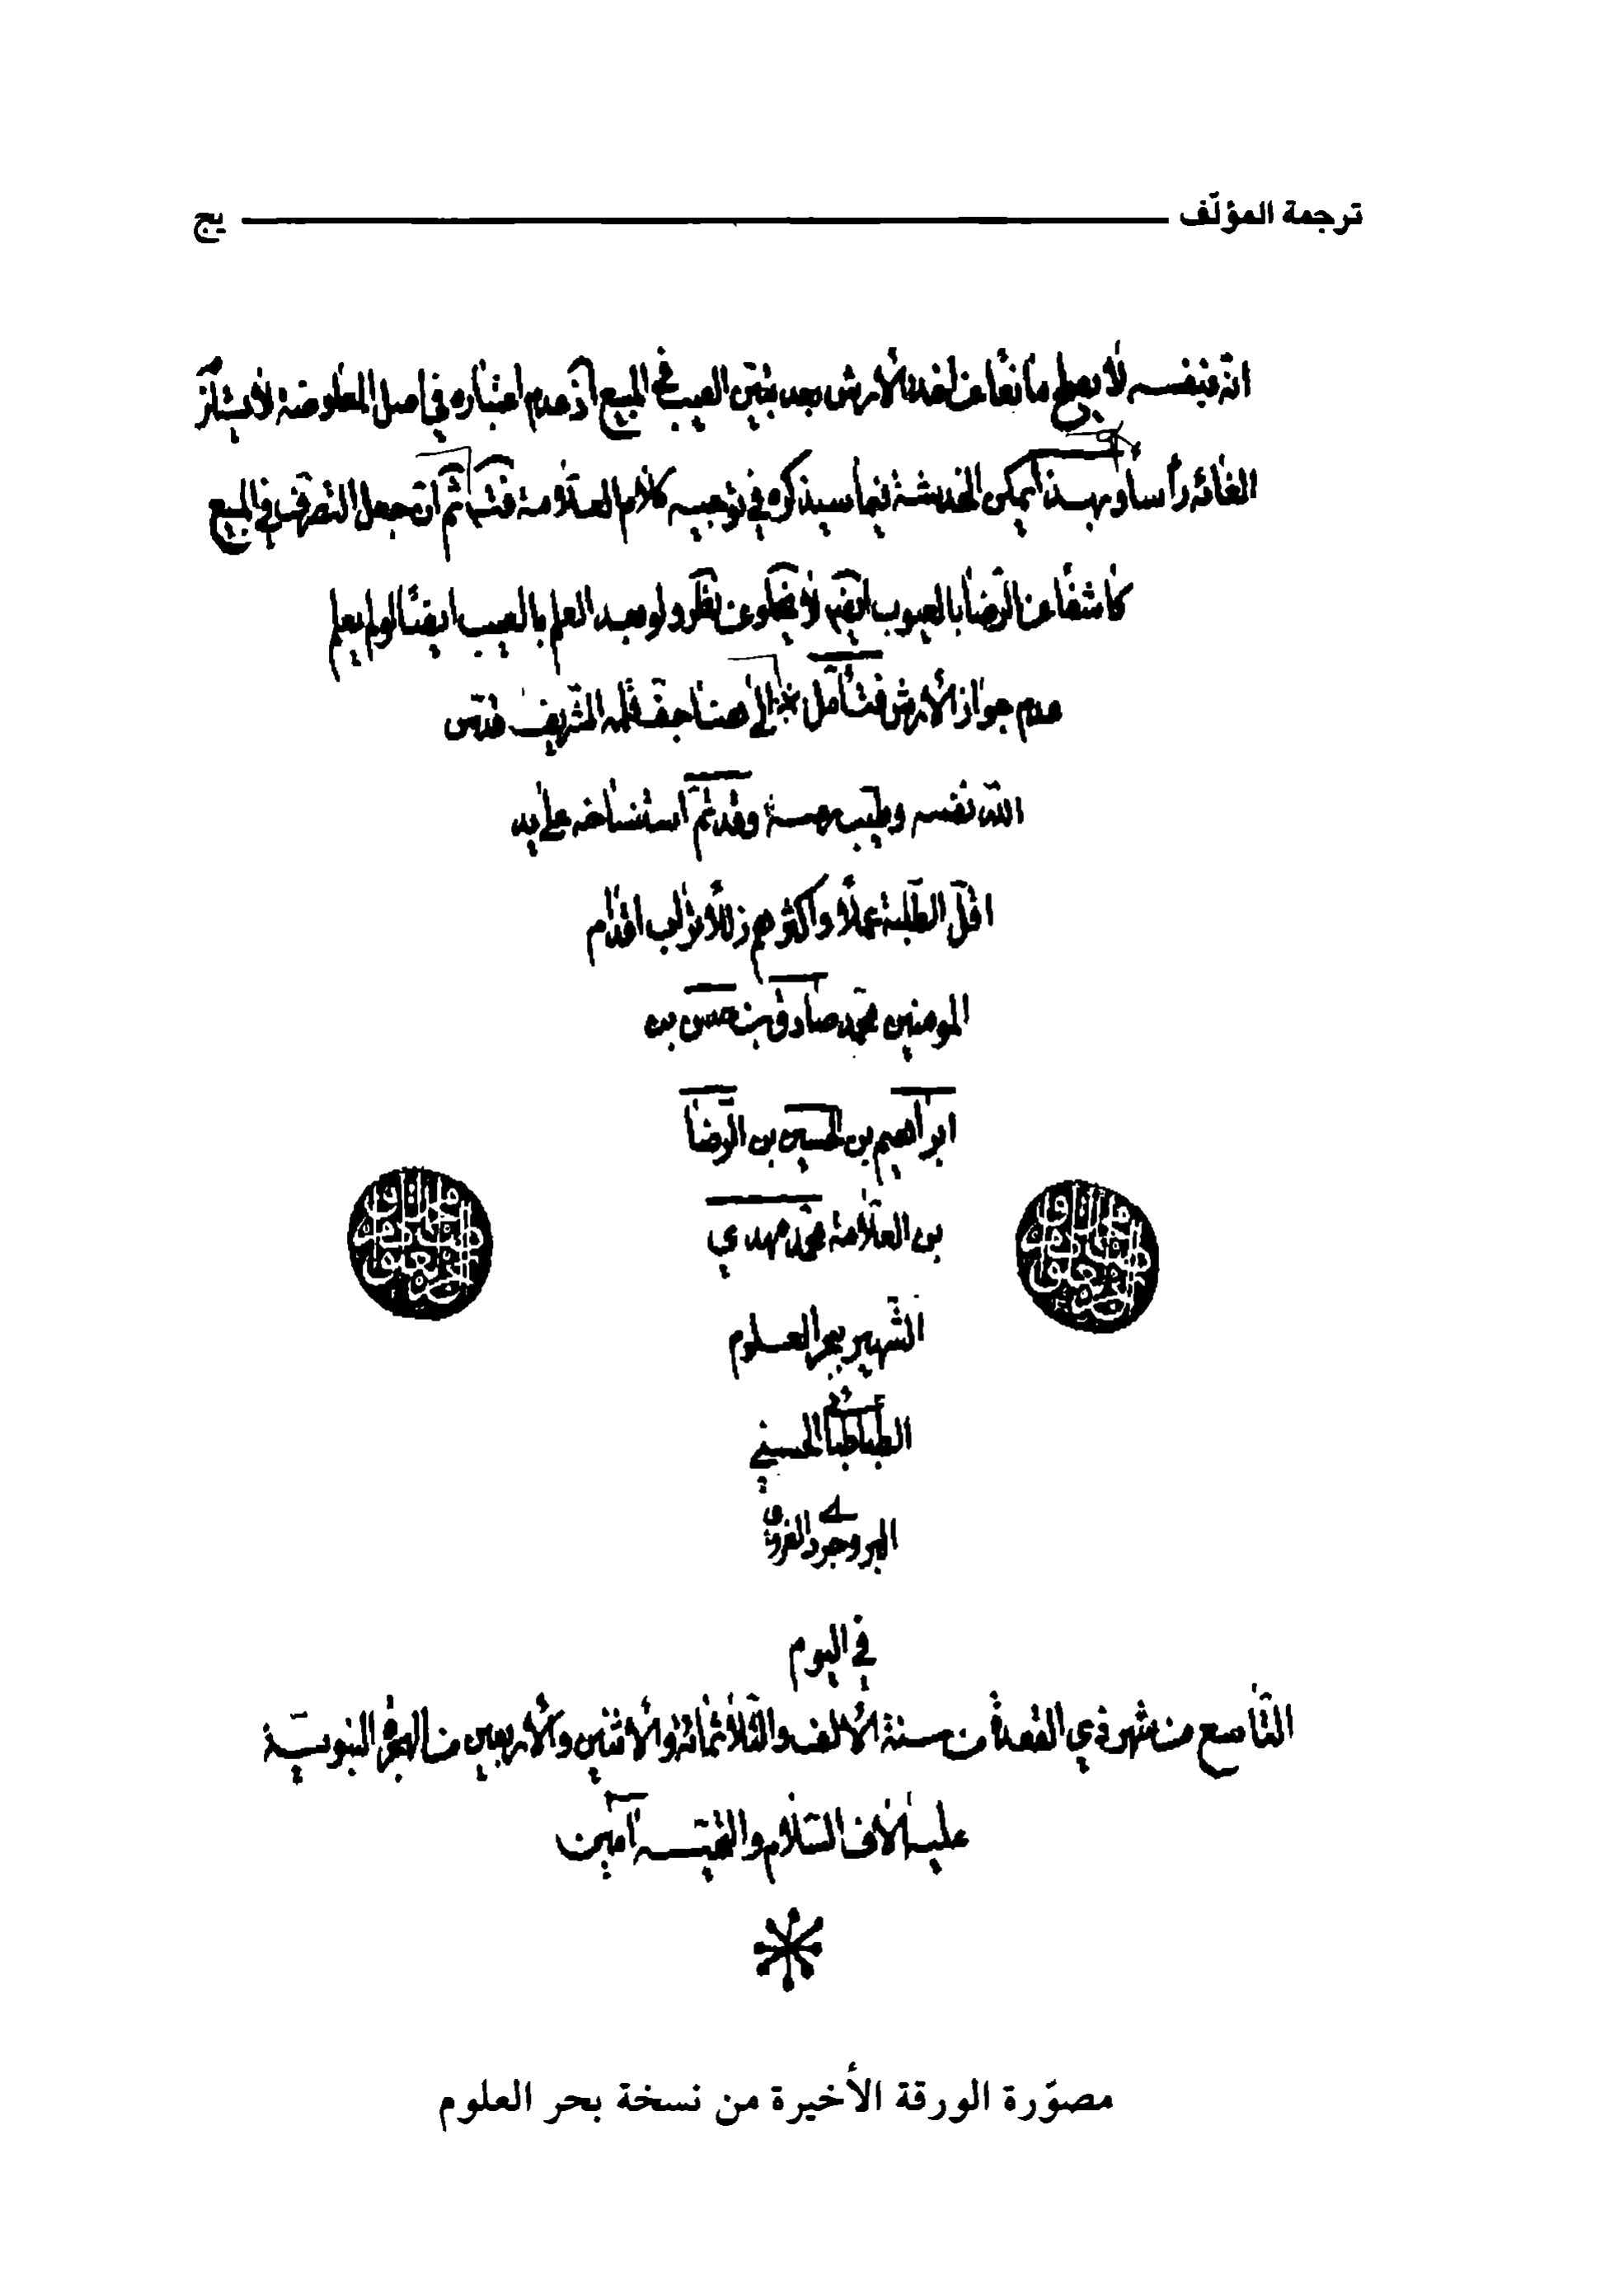 ترجمة المؤلّف يج
انّه بنفسه لا يصلح مانعا عن اخذ الأرش بعد تبيّن العيب في المبيع اذ عدم اعتباره في اصل المعاوضة لا يستلزم
الغائه رأسا وبهذا يمكن الخدشة فيما سيذكره في توجيه كلام العلّامة فتدبّر ثمّ انّ جعل التصرّف في المبيع
كاشفا عن الرّضا بالعيوب لا يخلو عن نظر ولو بعد العلم بالعيب ايضا لو لم يعلم
عدم جواز الأرش فتأمل * إلى هنا جفّ قلمه الشّريف قدّس
اللّه نفسه وطيّب رمسه وقد تمّ استنساخه على يد
اقلّ الطّلبة عملا واكثرهم زللا تراب اقدام
المومنين محمّد صادق بن حسن بن
ابراهيم بن الحسين بن الرّضا
بن العلّامة محمّد مهدي
الشّهير ببحر العلوم
الطباطبائي الحسني
البروجردي الغروي
في اليوم
التّاسع من شهر ذي القعدة من سنة الألف والثّلاثمائة والأثنين والأربعين من الهجرة النبويّة
عليه آلاف السّلام والتّحيّة آمين
مصوّرة الورقة الأخيرة من نسخة بحر العلوم